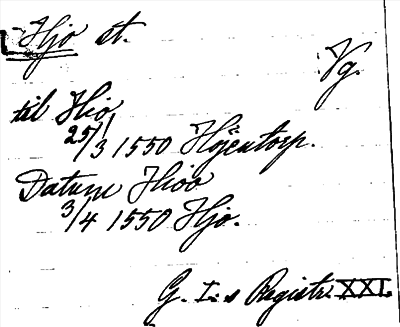 Hjo st.
Vg.
til Hio
25/3 1550 Höjentorp.
Datum Hioo
3/4 1550 Hjo.
G. I:s Registr. XXI.